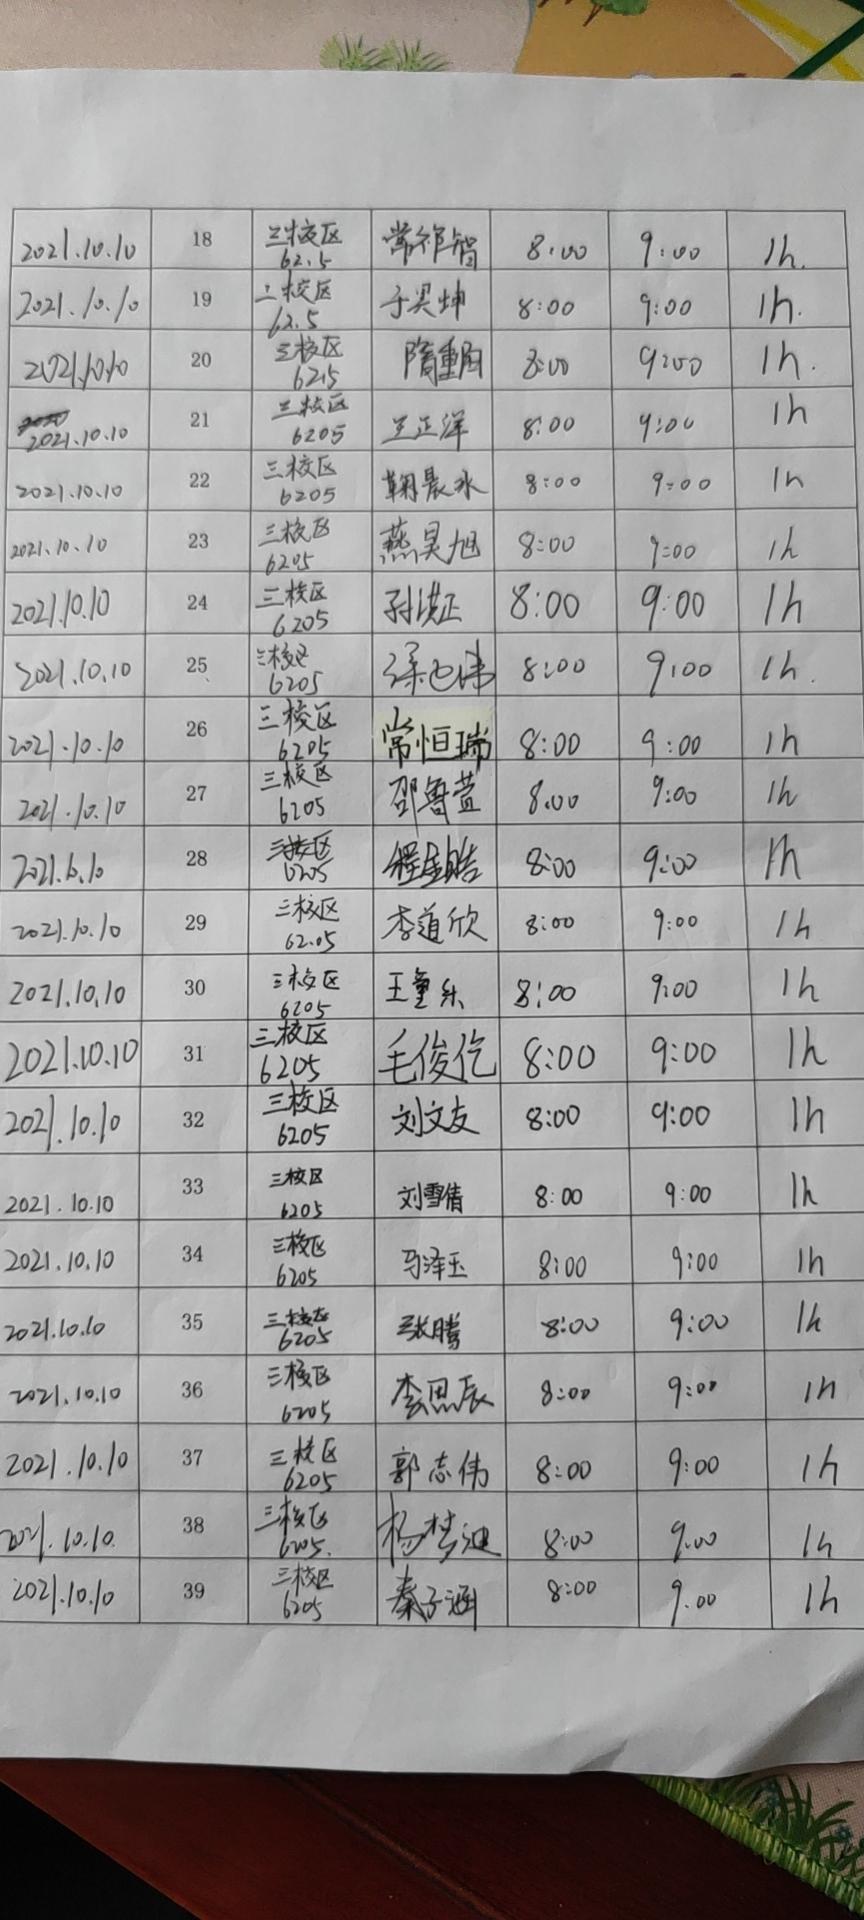 2021.10.10 18 三校区 常祚智 8:00 9:00 1h.
62.5
2021.10.10 19 三校区 于昊坤 8:00 9:00 1h.
62.5
2021.10.10 20 三校区 隋重阳 8:00 9:00 1h.
6215
2021.10.10 21 三校区 王正洋 8:00 9:00 1h
6205
2021.10.10 22 三校区 鞠晨冰 8:00 9:00 1h
6205
2021.10.10 23 三校区 燕昊旭 8:00 9:00 1h
6205
2021.10.10 24 三校区 孙洪正 8:00 9:00 1h
6205
2021.10.10 25 三校区 8:00 9:00 1h.
6205
2021.10.10 26 三校区 常恒瑞 8:00 9:00 1h
6205
2021.10.10 27 三校区 邵鲁萱 8:00 9:00 1h
6205
2021.10.10 28 三校区 8:00 9:00 1h
6205
2021.10.10 29 三校区 李道欣 8:00 9:00 1h
62.05
2021.10.10 30 三校区 王童乐 8:00 9:00 1h
6205
2021.10.10 31 三校区 毛俊仡 8:00 9:00 1h
6205
2021.10.10 32 三校区 刘文友 8:00 9:00 1h
6205
2021.10.10 33 三校区 刘雪倩 8:00 9:00 1h
6205
2021.10.10 34 三校区 马泽玉 8:00 9:00 1h
6205
2021.10.10 35 三校区 张腾 8:00 9:00 1h
6205
2021.10.10 36 三校区 李思辰 8:00 9:00 1h
6205
2021.10.10 37 三校区 郭志伟 8:00 9:00 1h
6205
2021.10.10. 38 三校区 杨梦迪 8:00 9:00 1h
6205.
2021.10.10 39 三校区 秦子涵 8:00 9.00 1h
6205